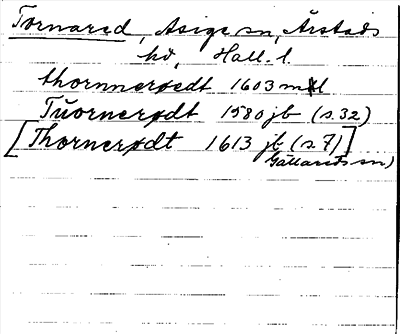 Tornared, Asige sn, Årstads
hd, Hall. l.
thornnerøedt 1603 mtl
Tuornerødt 1580 jb (s. 32)
[Thornerødt 1613 jb (s. 7)]
Gällareds sn)